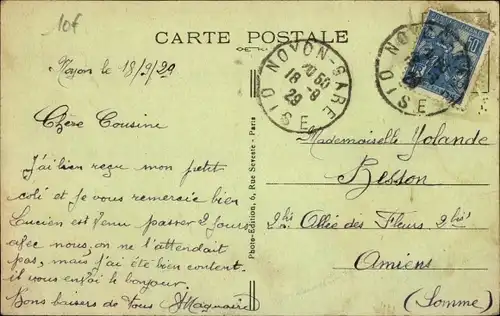 10f
CARTE POSTALE
Noyon le 18/9/29
NOYON-GARE
18 -9
29
OISE
NOYON
OISE
50
Chère Cousine
J'ai bien reçu mon petit
coli et je vous remercie bien
Lucien est venu passer 2 jours
avec nous, on ne l'attendait
pas, mais j'ai été bien content.
il vous envoi le bonjour.
Bons baisers de tous
Photo-Edition, 6, Rue Seveste - Paris
Mademoiselle Yolande
Besson
2bis Allée des Fleurs 2bis
Amiens
(Somme)